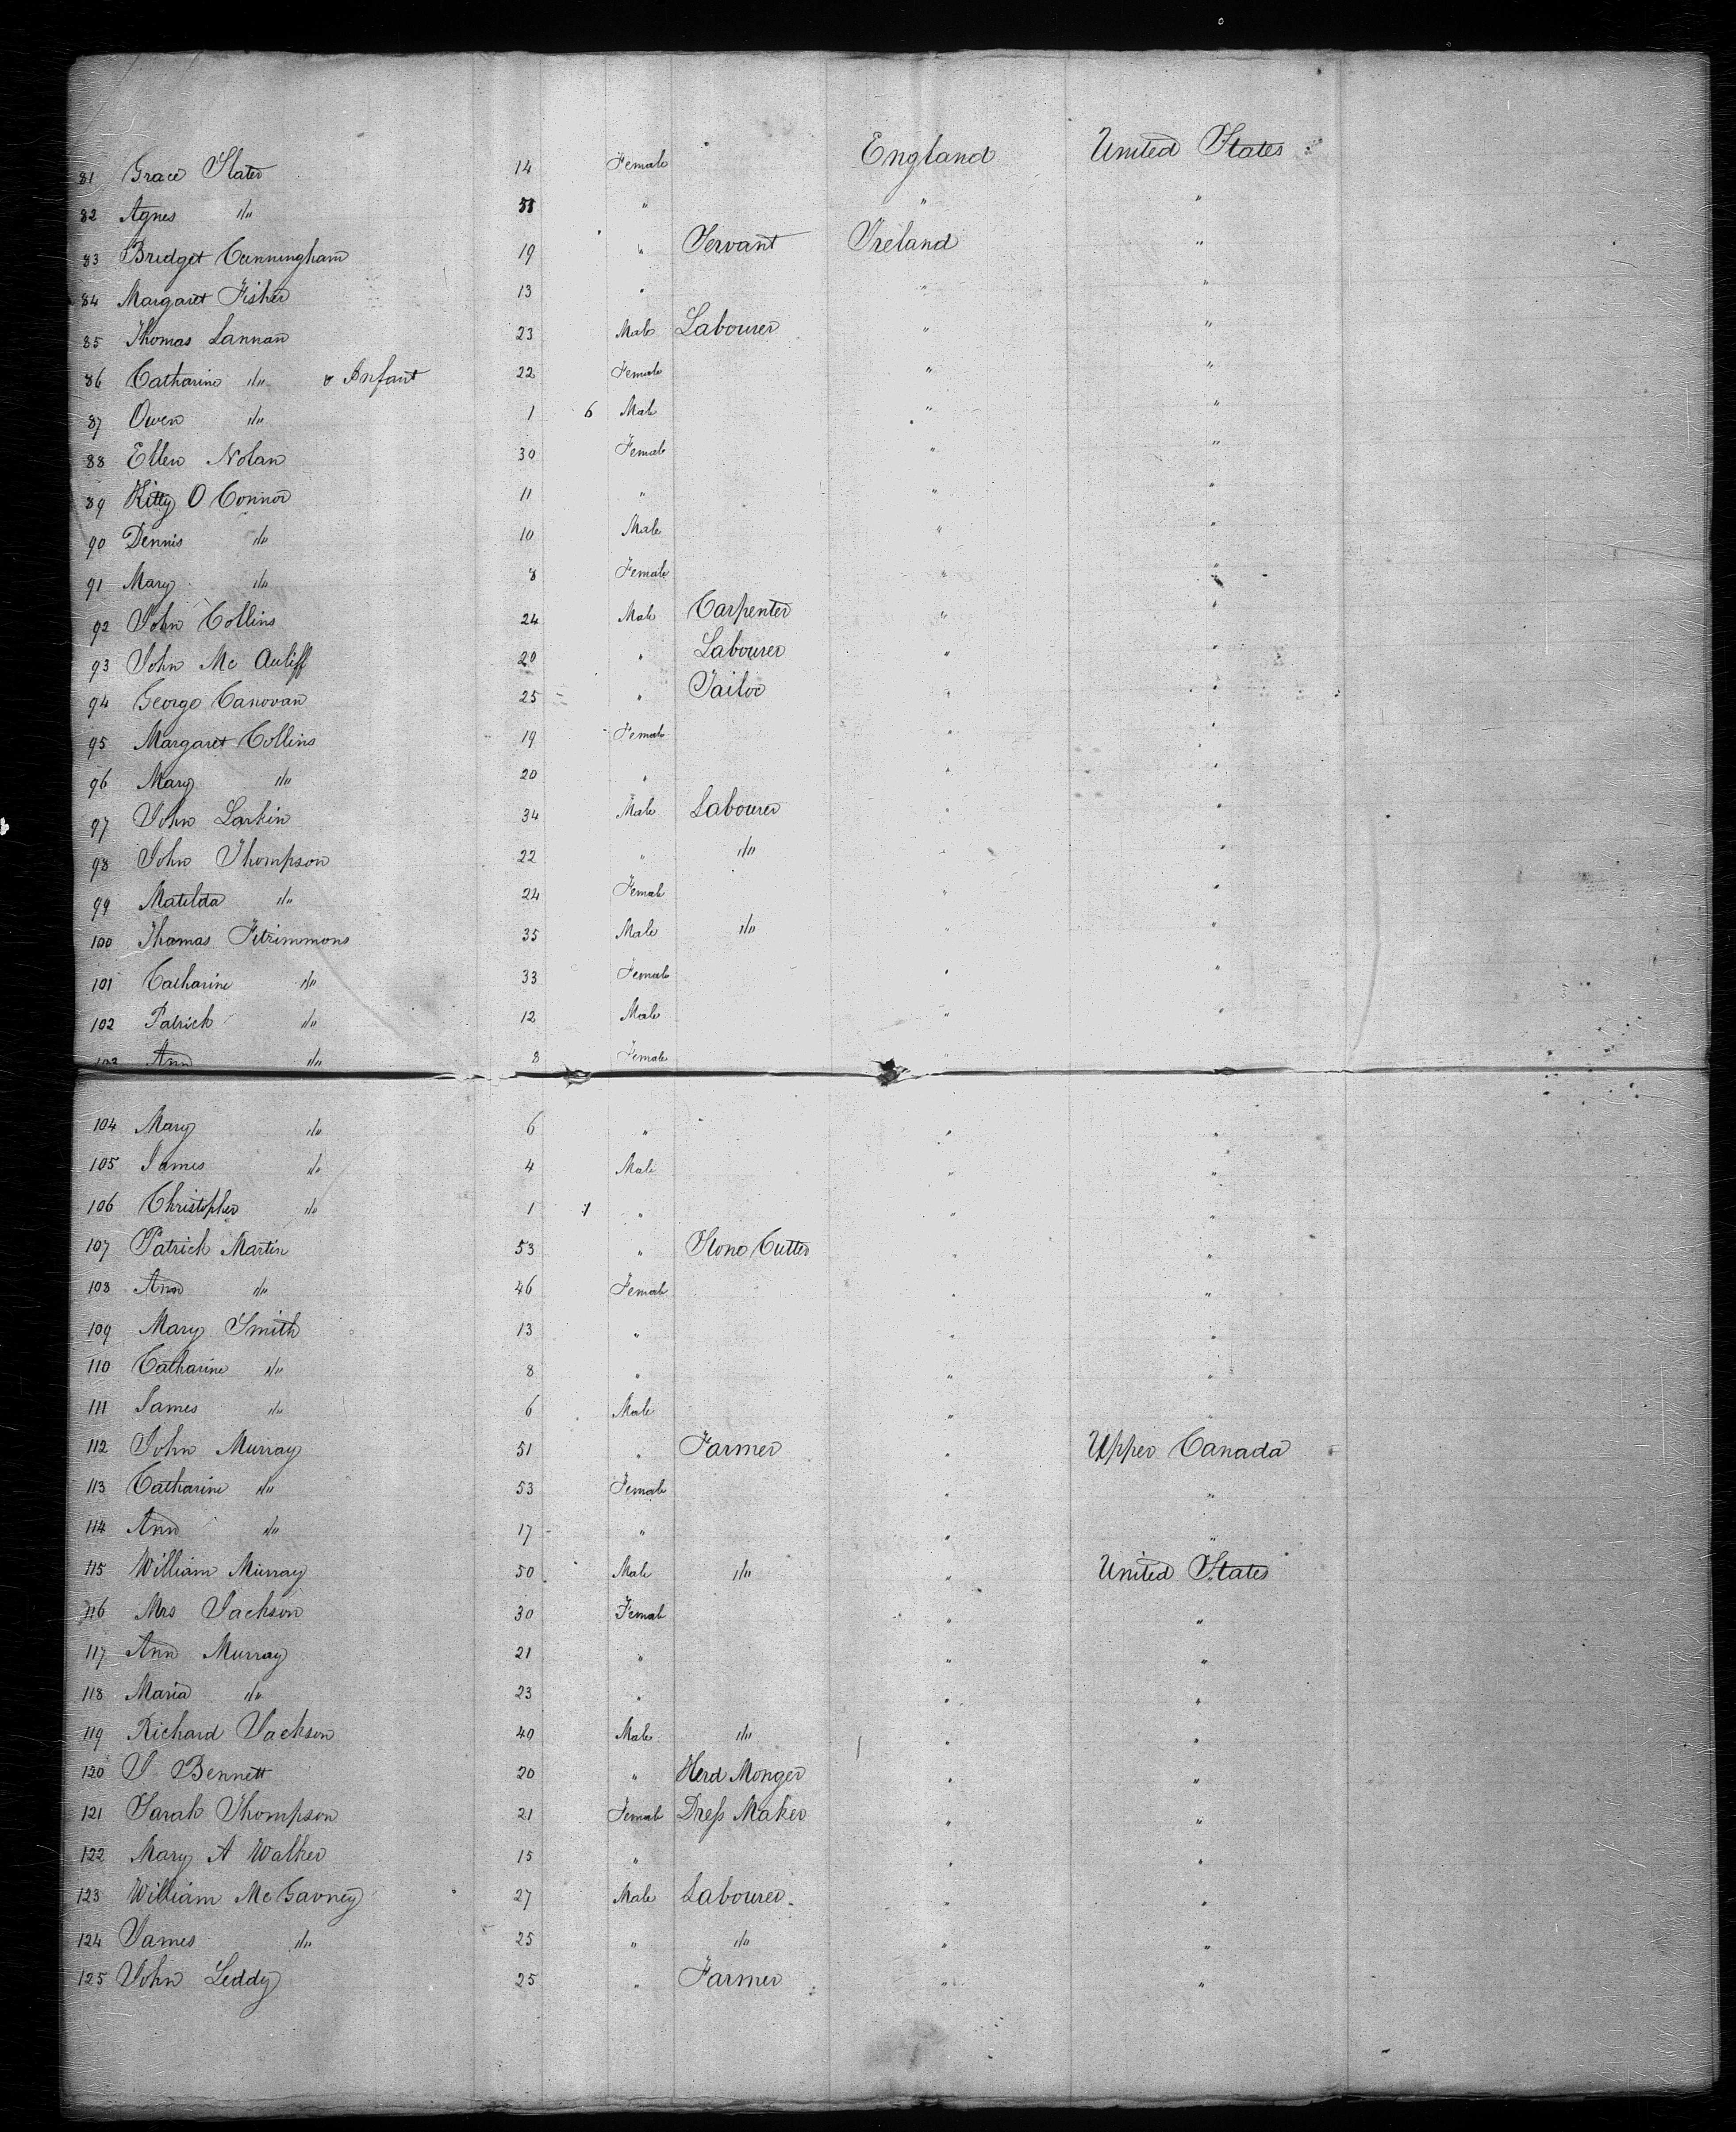 81 Grace Slater 14 Female England United States
82 Agnes do 51 " " "
83 Bridget Cunningham 19 " Servant Ireland "
84 Margaret Fisher 13 " " "
85 Thomas Lannan 23 Male Labourer " "
86 Catharine do & Infant 22 Female " "
87 Owen do 1 6 Male " "
88 Ellen Nolan 30 Female " "
89 Kitty O Connor 11 " " "
90 Dennis do 10 Male " "
91 Mary do 8 Female " "
92 John Collins 24 Male Carpenter " "
93 John Mc Auliff 20 " Labourer " "
94 George Canovan 25 " Tailor " "
95 Margaret Collins 19 Female " "
96 Mary do 20 " " "
97 John Larkin 34 Male Labourer " "
98 John Thompson 22 " do " "
99 Matilda do 24 Female " "
100 Thomas Fitzimmons 35 Male do " "
101 Catharine do 33 Female " "
102 Patrick do 12 Male " "
103 Ann do 8 Female "
104 Mary do 6 " " "
105 James do 4 Male " "
106 Christopher do 1 1 " " "
107 Patrick Martin 53 " Stone Cutter " "
108 Ann do 46 Female " "
109 Mary Smith 13 " " "
110 Catharine do 8 " " "
111 James do 6 Male " "
112 John Murray 51 " Farmer " Upper Canada
113 Catharine do 53 Female " "
114 Ann do 17 " " "
115 William Murray 50 Male do " United States
116 Mrs Jackson 30 Female " "
117 Ann Murray 21 " " "
118 Maria do 23 " " "
119 Richard Jackson 40 Male do " "
120 J Bennett 20 " Herd Monger " "
121 Sarah Thompson 21 Female Dress Maker " "
122 Mary A Walker 15 " " "
123 William Mc Gavney 27 Male Labourer " "
124 James do 25 " do " "
125 John Leddy 25 " Farmer " "